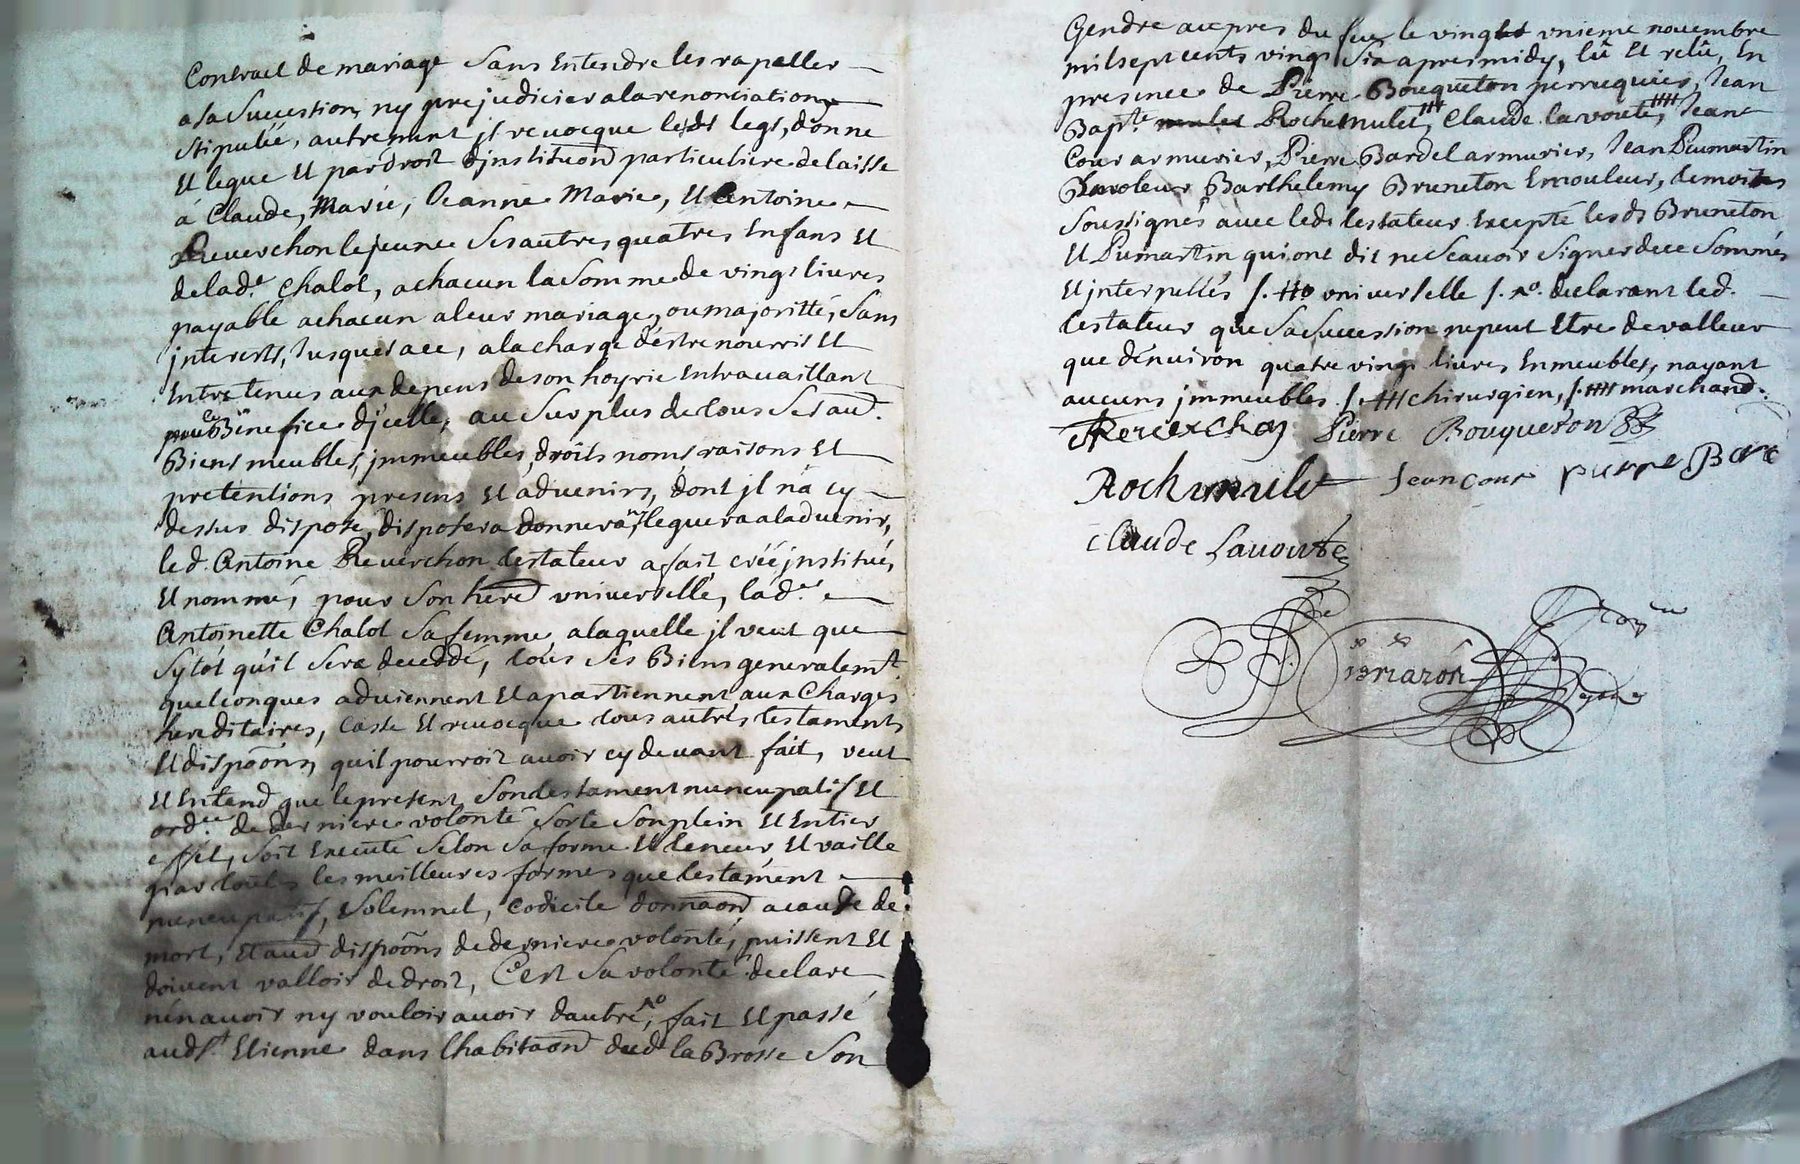 Contract de mariage sans entendre les rapeller
a sa succession, ny prejudicier a la renonciation
stipulée, autrement jl revocque lesds legs, donne
et legue et par droit d'jnstitution particuliere delaisse
à Claude, Marie, Jeanne Marie, et Antoine
Reverchon le jeune ses autres quatres enfans et
de lade. Chalot, a chacun la somme de vingt livres
payable a chacun a leur mariage, ou majoritté, sans
jnterests, jusques a ce, a la charge d'estre nourris et
entretenus aux depens de son hoyrie en travaillant
au Benefice d'jcelle, au surplus de tous ses aud.
Biens meubles, jmmeubles, droits noms raisons et
pretentions presens et advenirs, dont jl n'a cy
dessus disposé, disposera donnera ny leguera a l'advenir,
led. Antoine Reverchon testateur a fait créé jnstitué,
et nommé, pour son hered universelle, lade.
Antoinette Chalot sa femme, a laquelle jl veut que
sytôt qu'il sera deceddé, tous ses Biens generalemt.
quelconques adviennent et apartiennent aux Charges
hereditaires, casse et revocque tous autres testaments
et dispoons, qu'il pourroit avoir cy devant fait, veut
et entend que le present son testament nuncupatif et
ordce. de derniere volonté sorte son plein et entier
effet, soit executé selon sa forme et teneur et vaille
par toutes les meilleures formes que testament
nuncupatif, solemnel, codicile donnaon a cause de
mort, et aud dispoons de derniere volonté, puissent et
doivent valloir de droit, C'est sa volonté declare
n'en avoir ny vouloir avoir d'autre, fait et passé
aud St. Etienne dans l'habitaon dud la Brosse son
Gendre aupres du feu le vingt unieme novembre
mil sept cents vingt six apres midy, lû et relû, en
presence de Pierre Bouqueton perruquier, Jean
Bapte. Rochemulet, Claude lavoute, Jean
Cour armurier, Pierre Bardel armurier, Jean Dumartin
Barthelemy Bruneton emouleur, temoins
soussignés avec led testateur excepté lesds Bruneton
et Dumartin qui ont dit ne scavoir signer de ce sommés
et jnterpellés /. universelle /. declarant led.
testateur que sa succession ne peut etre de valleur
que d'environ quatre vingt livres en meubles, n'ayant
aucuns jmmeubles /. chirurgien, /. marchand.
A Rererchon Pierre Bouqueton
Rochmulet Jean Cour pierre Bar
Claude Lavoute